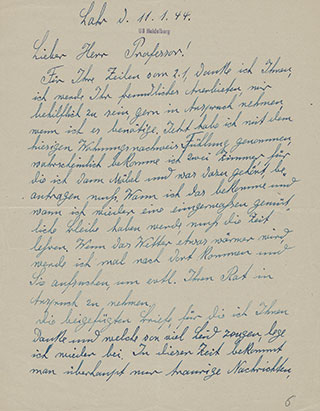 Lahr d. 11.1.44.
UB Heidelberg
Lieber Herr Professor!
Für Ihre Zeilen vom 2.1. danke ich Ihnen,
ich werde Ihr freundliches Anerbieten mir
behilflich zu sein gern in Anspruch nehmen
wenn ich es benötige. Jetzt habe ich mit dem
hiesigen Wohnungsnachweis Fühlung genommen
wahrscheinlich bekomme ich zwei Zimmer für
die ich dann Möbel und was dazu gehört be
antragen muß. Wann ich das bekomme und
wann ich wieder eine einigermaßen gemüt
liche Bleibe haben werde muß die Zeit
lehren. Wenn das Wetter etwas wärmer wird
werde ich mal nach dort kommen und
Sie aufsuchen um evtl. Ihren Rat in
Anspruch zu nehmen.
Die beigefügten Briefe für die ich Ihnen
danke und welche von viel Leid zeugen, lege
ich wieder bei. In dieser Zeit bekommt
man überhaupt nur traurige Nachrichten,
6